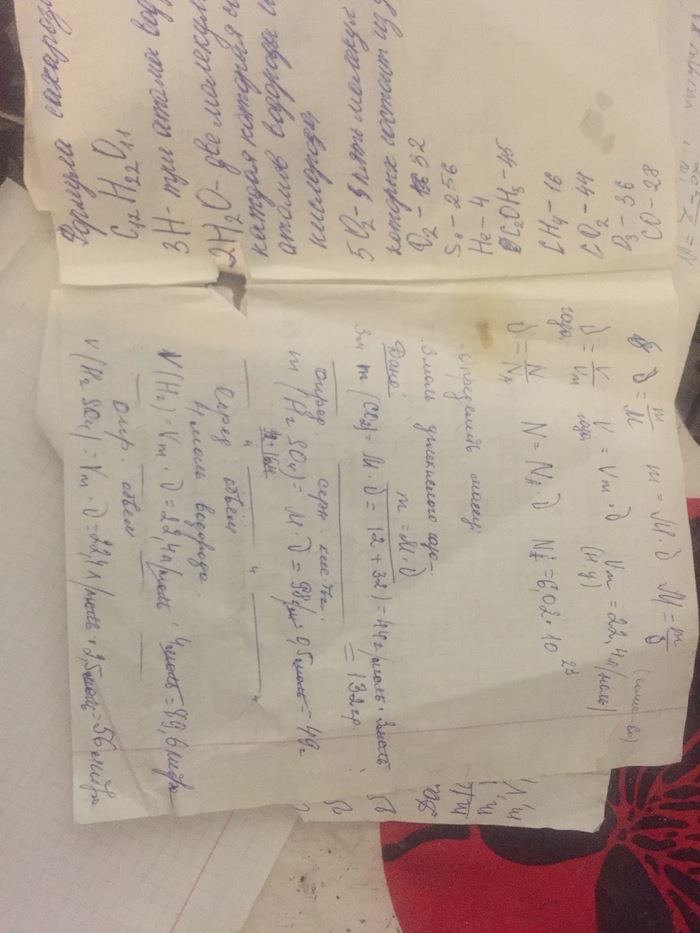 Формула сахарозы
C12H22O11
3H - три атома вод
2H2O - две молекулы
каждая которая и
атомов водорода и
кислорода
5O2 - пять молекул
которых состоит из
O2 - 32
S8 - 256
He - 4
C2OH5 - 45
CH4 - 16
CO2 - 44
P3 - 36
CO - 28
ν = m/M m = M · ν M = m/ν
ν = V/Vm V = Vm · ν Vm = 22,4 л/моль
газа газа (н.у)
ν = N/NA N = NA · ν NA = 6,02 · 10^23
определить массу
3 моль углекислого
Дано: m = M · ν
m (CO2) = M · ν = 12 + 32) = 44 г/моль · 3 моль
= 132 гр.
опред. серн кис-ты.
m (H2SO4) = M · ν = 98 г/моль · 0,5 моль = 49 г
опред объём
4 моль водорода.
V(H2) = Vm · ν = 22,4 л/моль · 4 моль = 89,6 литра
опр. объем
V(H2SO4) = Vm · ν = 22,4 л/моль · 2,5 моль = 56 литра